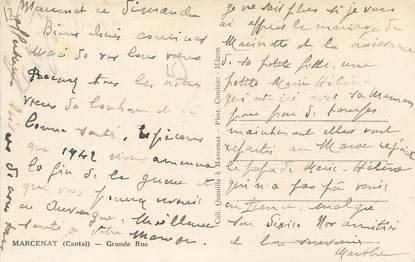 Marcenat ce Dimanche
Biens chers cousines
Merci de vos bons vœux
Recevez tous les nôtres
vœux de bonheur de
bonne santé, espérons
que 1942 nous amènera
la fin de la guerre et
que vous pourrez venir
en Auvergne. Meilleure
santé à votre Maman.
MARCENAT (Cantal) — Grande Rue
Coll. Quenille à Marcenat - Phot. Combier - Mâcon
je ne sais plus si je vous
ai appris le mariage de
et de la naissance
de sa petite fille, une
petite Marie Hélène
qui est ici avec sa Maman
pour peu de temps
maintenant elles vont
repartir au Maroc
le papa de Marie-Hélène
qui n'a pas pû venir
en France, malgré
son désir. Nos amitiés
et bon souvenir
Marthe